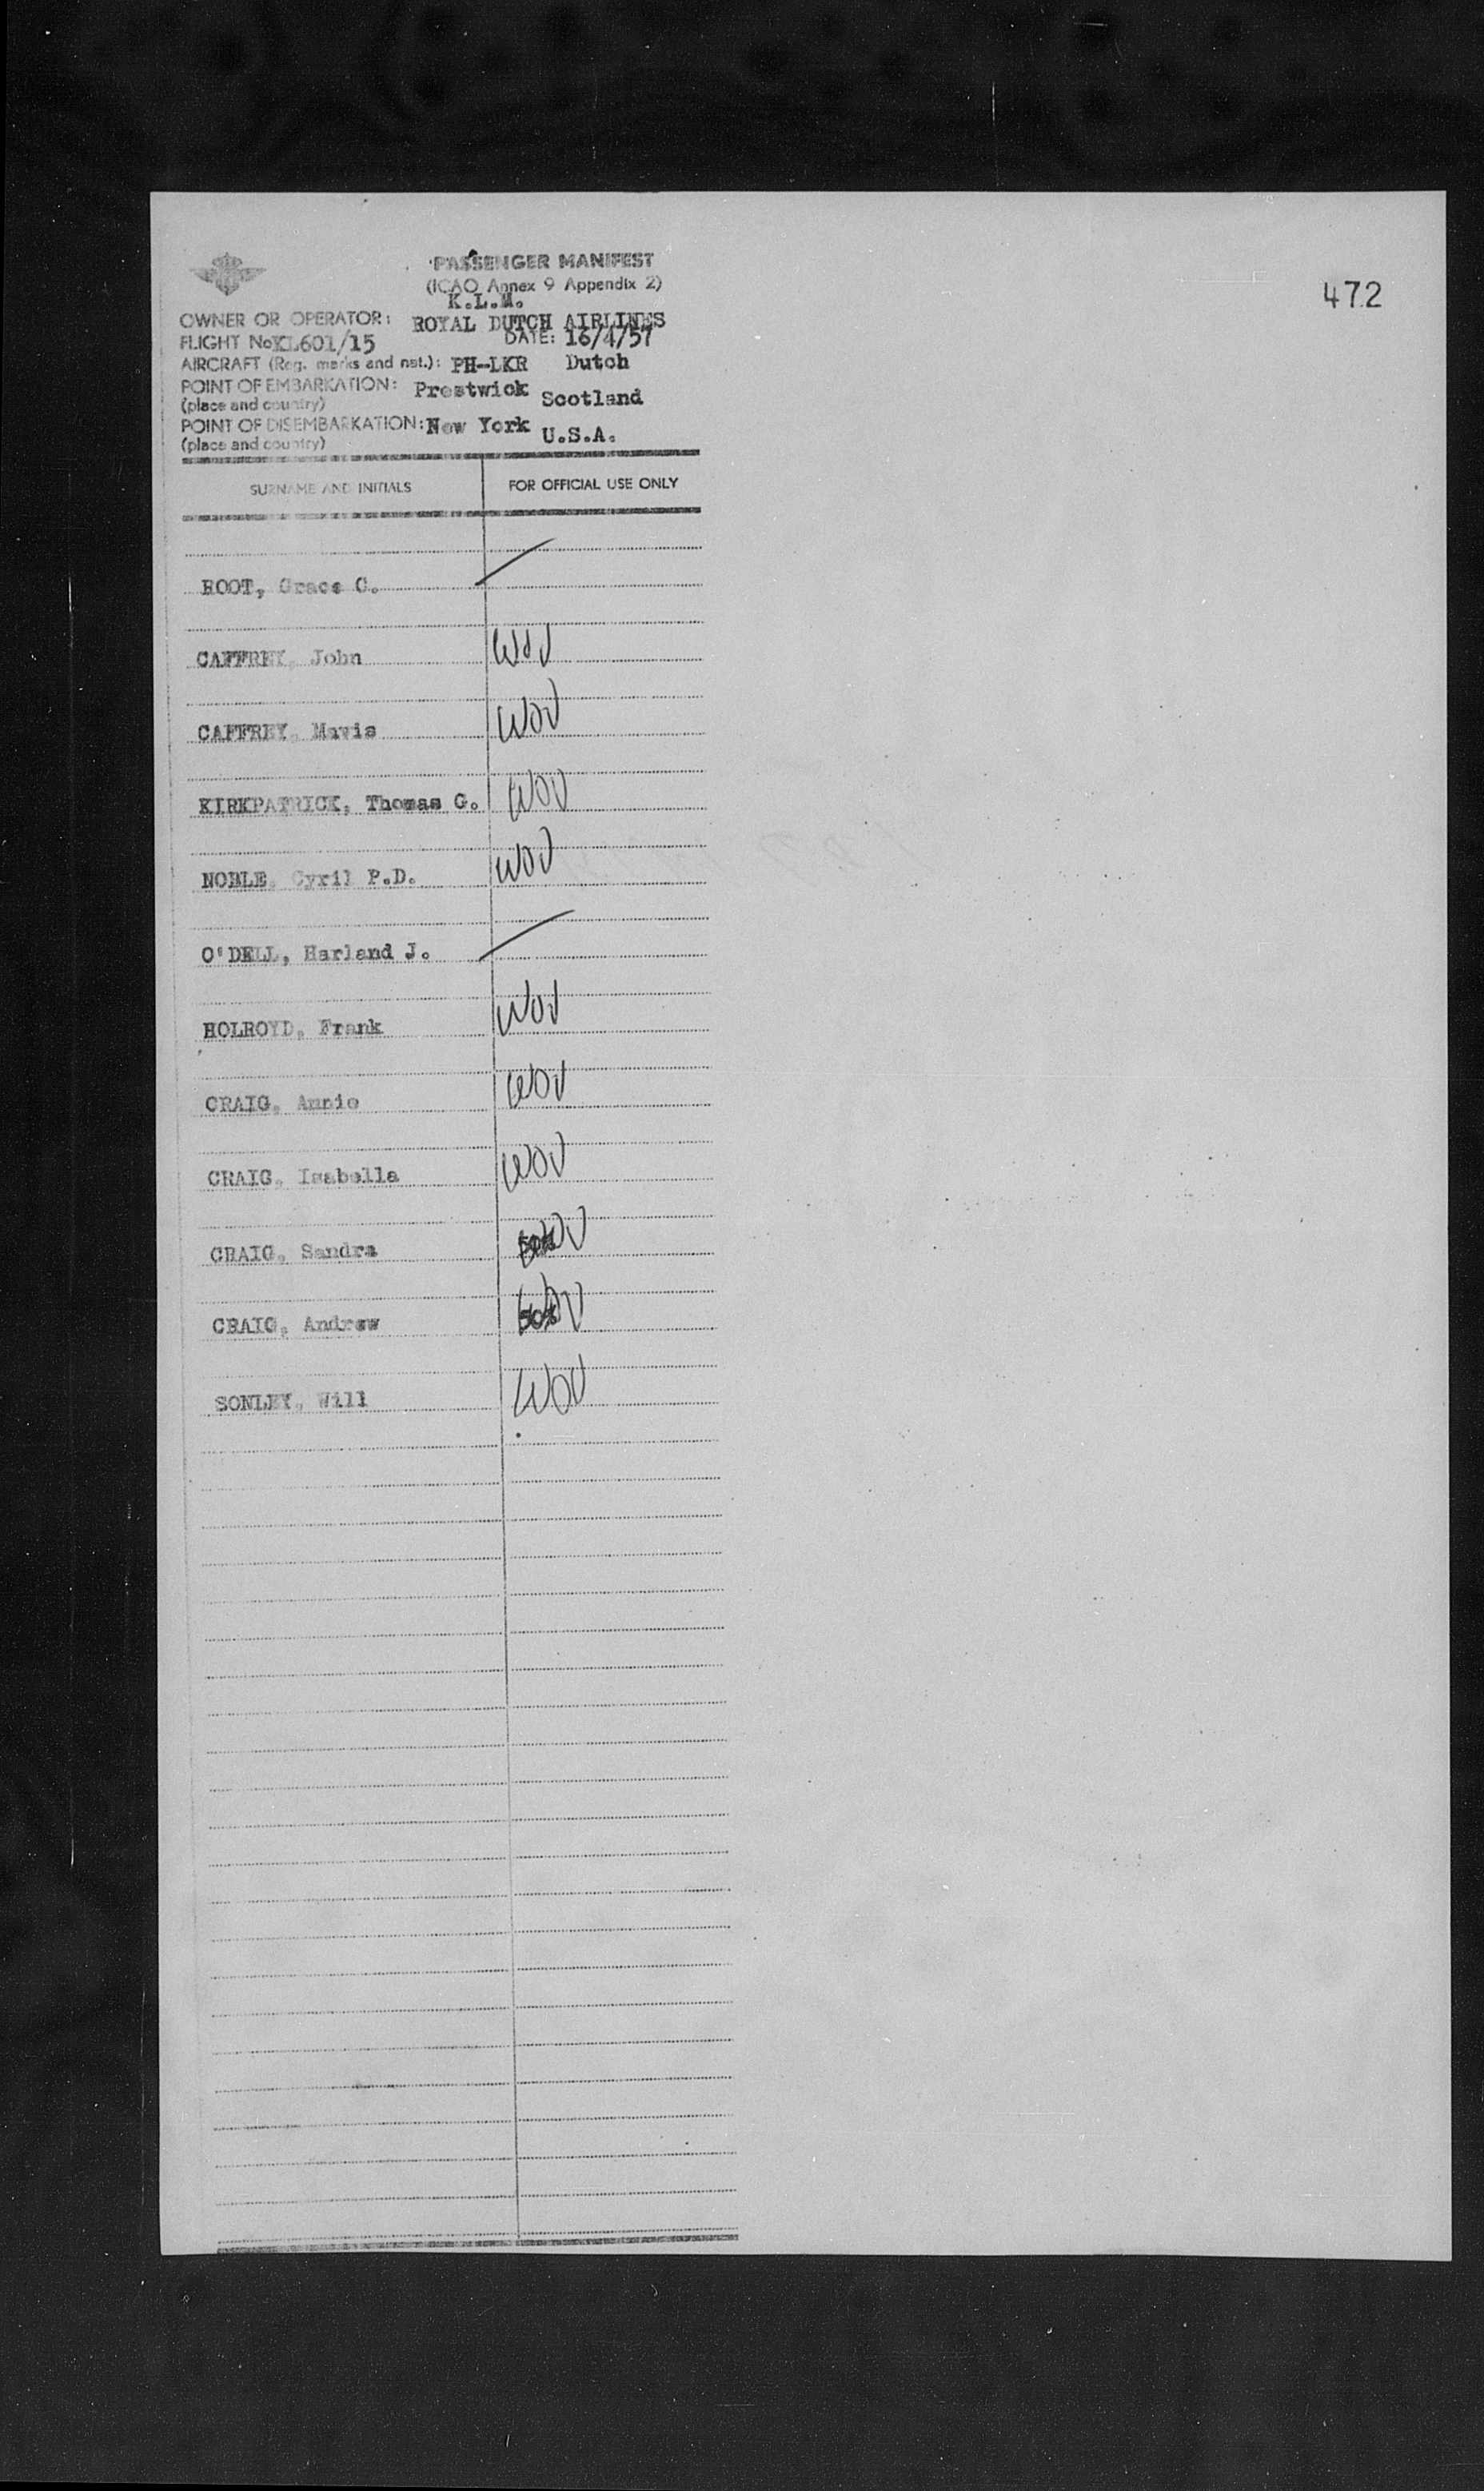 472
PASSENGER MANIFEST
(ICAO Annex 9 Appendix 2)
K.L.M.
OWNER OR OPERATOR: ROYAL DUTCH AIRLINES
FLIGHT No KL601/15 DATE: 16/4/57
AIRCRAFT (Reg. marks and nat.): PH-LKR Dutch
POINT OF EMBARKATION: Prestwick Scotland
(place and country)
POINT OF DISEMBARKATION: New York U.S.A.
(place and country)
SURNAME AND INITIALS FOR OFFICIAL USE ONLY
ROOT, Grace C.
CAFFREY, John WOV
CAFFREY, Mavis WOV
KIRKPATRICK, Thomas G. WOV
NOBLE, Cyril P.D. WOV
O'DELL, Harland J.
HOLROYD, Frank WOV
CRAIG, Annie WOV
CRAIG, Isabella WOV
CRAIG, Sandra 50% WOV
CRAIG, Andrew 50% WOV
SONLEY, Will WOV